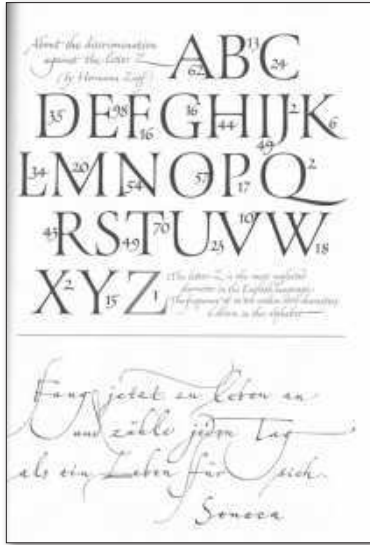 About the discrimination
against the letter Z
(by Hermann Zapf)
A 62 B 13 C 24
D 35 E F 98 16 G 16 H 44 I J 2 49 K 6
L 34 M 20 N 54 O 57 P 17 Q 2
R 43 S T 49 70 U 23 V 10 W 18
X 2 Y 15 Z 1
(The letter Z is the most neglected
character in the English language.
The frequency of use within 1000 characters
is shown in this alphabet
Fang jetzt zu leben an
und zähle jeden Tag
als ein Leben für sich.
Seneca